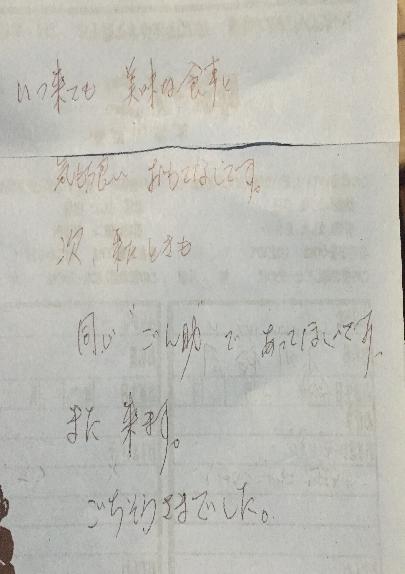 いつ来ても 美味な食事と
気も良い おもてなしです。
次 来たときも
同じ"ごん助"で あってほしいです。
また 来ます。
ごちそうさまでした。